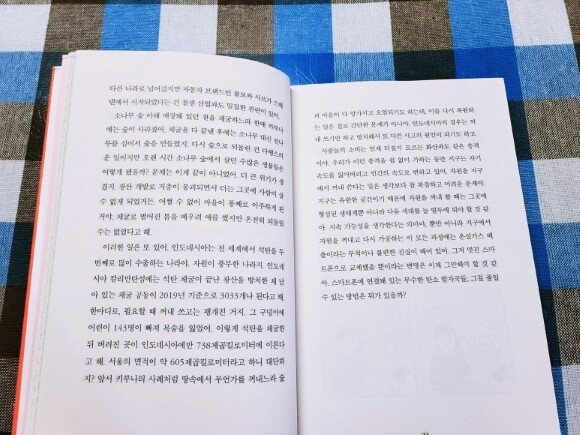 다른 나라로 넘어갔지만 자동차 브랜드인 볼보와 사브가 스웨
덴에서 시작되었다는 건 철광 산업과도 밀접한 관련이 있어.
소나무 숲 아래 매장돼 있던 철을 채굴하느라 한때 키루나
에는 숲이 사라졌어. 채굴을 다 끝낸 후에는 소나무 대신 전나
무를 심어서 숲을 만들었지. 다시 숲으로 되돌린 건 다행스러
운 일이지만 오랜 시간 소나무 숲에서 살던 수많은 생물들은
어떻게 됐을까? 문제는 이게 끝이 아니었어. 더 큰 위기가 생
겼지. 광산 개발로 지층이 붕괴되면서 더는 그곳에 사람이 살
수 없게 되었거든. 어쩔 수 없이 마을이 통째로 이주하게 된
거야. 채굴로 벌어진 틈을 메우려 애를 썼지만 온전히 되돌릴
수는 없었다고 해.
이러한 일은 또 있어. 인도네시아는 전 세계에서 석탄을 두
번째로 많이 수출하는 나라야. 자원이 풍부한 나라지. 인도네
시아 칼리만탄섬에는 석탄 채굴이 끝난 광산을 방치한 채 남
아 있는 채굴 공동이 2019년 기준으로 3033개나 된다고 해.
한마디로, 필요할 때 꺼내 쓰고는 팽개친 거지. 그 구덩이에
어린이 143명이 빠져 목숨을 잃었어. 이렇게 석탄을 채굴한
뒤 버려진 곳이 인도네시아에만 738제곱킬로미터에 이른다
고 해. 서울의 면적이 약 605제곱킬로미터라고 하니 대단하
지? 앞서 키루나의 사례처럼 땅속에서 무언가를 꺼내느라 숲
과 마을이 다 망가지고 오염되기도 하는데, 이를 다시 복원하
는 일은 결코 간단한 문제가 아니야. 인도네시아의 경우는 꺼
내 쓰기만 하고 방치해서 또 다른 사고의 원인이 되기도 하고.
사람들의 소비는 언제 터질지 모르는 화산과도 같은 충격
이야. 우리가 이런 충격을 쉴 없이 가하는 동안 지구는 자기
속도를 잃어버리고 인간의 속도로 변하고 있어. 자원을 지구
에서 꺼내 쓴다는 일은 생각보다 참 복잡하고 어려운 문제야.
지구는 유한한 공간이기 때문에 자원을 꺼내 쓸 때는 그곳에
형성된 생태계뿐 아니라 다음 세대를 늘 염두에 둬야 할 것 같
아. 지속 가능성을 생각한다는 의미야. 뿐만 아니라 지구에서
자원을 꺼내고 다시 가공하는 이 모든 과정에는 온실가스 배
출이라는 무척이나 불편한 진실이 배어 있어. 그저 멋진 스마
트폰으로 교체했을 뿐이라는 변명은 이제 그만해야 할 것 같
아. 스마트폰에 연결돼 있는 무수한 탄소 발자국들, 그걸 줄일
수 있는 방법은 뭐가 있을까?